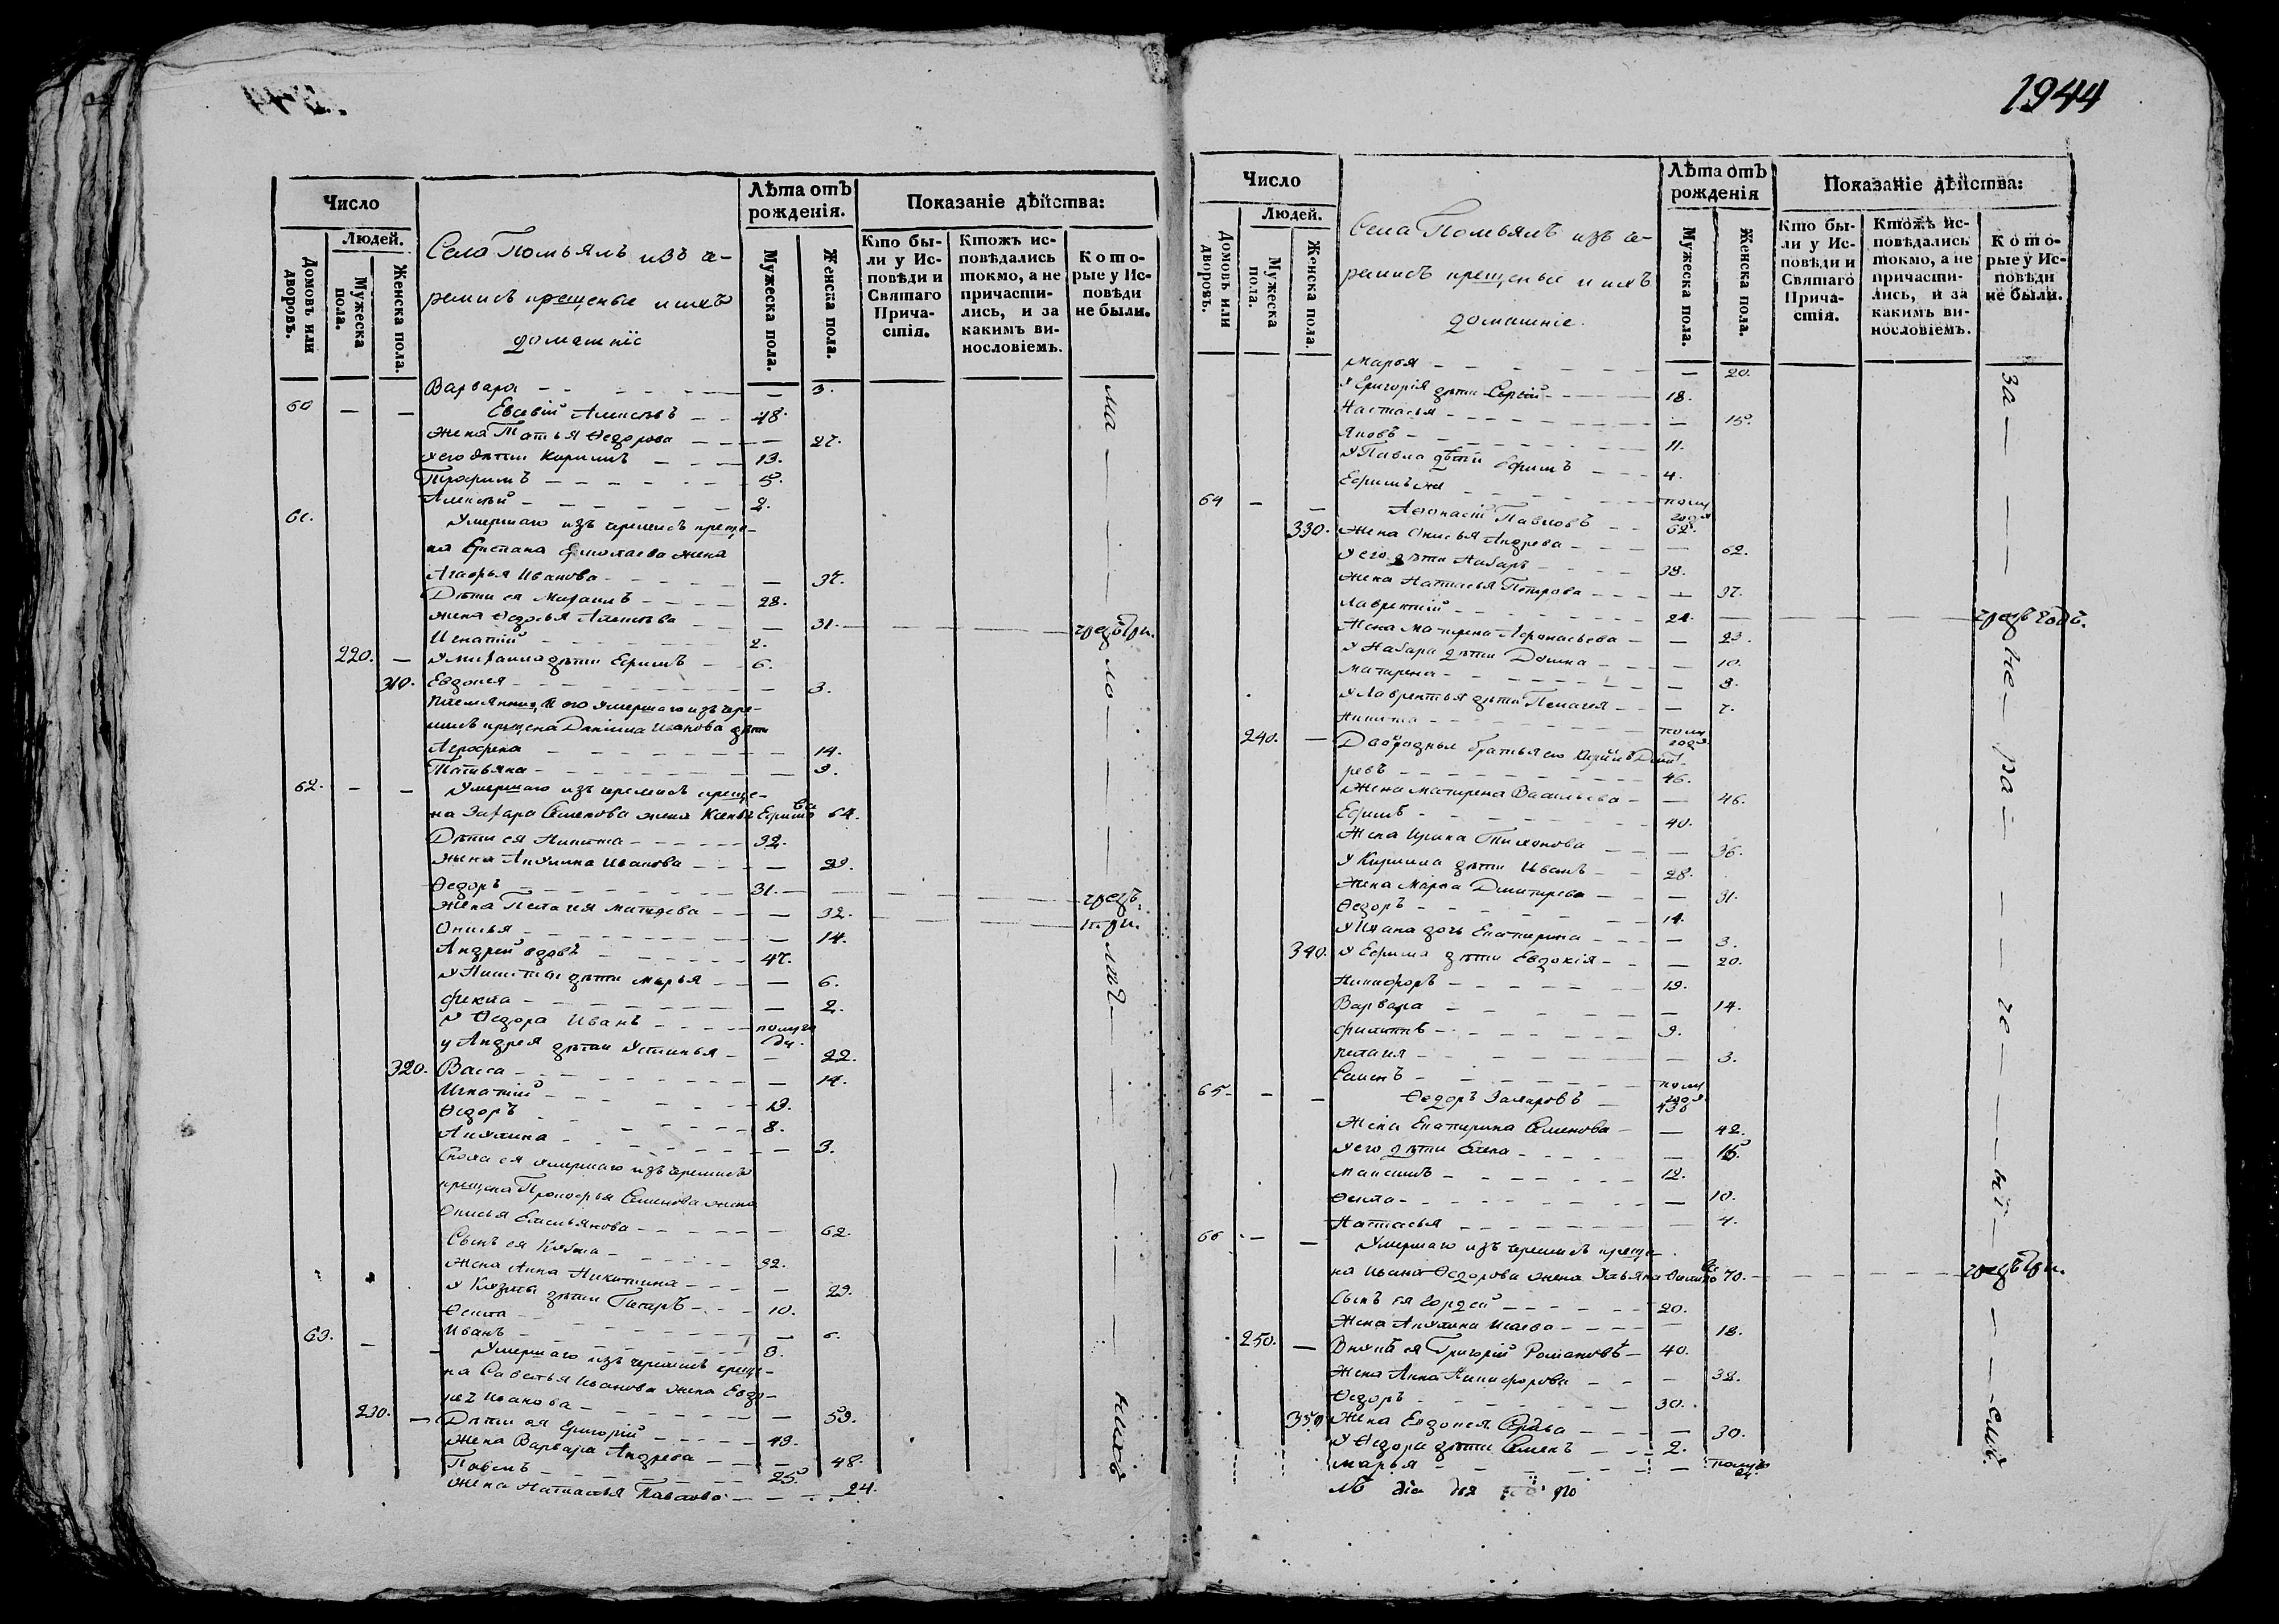 Число
Людей.
Домовъ или дворовъ.
Мужеска пола.
Женска пола.
Село Помьялъ изъ че-
ремисъ крещеные и ихъ
домашніе
Лѣта отъ рожденія.
Мужеска пола.
Женска пола.
Показаніе дѣйства:
Кто бы-
ли у Ис-
повѣди и
Святаго
Прича-
стія.
Ктожъ ис-
повѣдались
токмо, а не
причасти-
лись, и за
какимъ ви-
нословіемъ.
Кото-
рые у Ис-
повѣди
не были.
Варвара - - - 3.
60 - - Евсевій Алексѣевъ - - 48.
жена Татья Ѳедорова - - - 27.
У его дѣти Кирилъ - - - 13.
Трофимъ - - - 5.
Алексѣй - - - 2.
61. Умершаго изъ черемисъ креще-
на Ермолаева жена
Агафья Иванова - - - 37.
Дѣти ея Михаилъ - - - 28.
жена Ѳедосья Алексѣева - - - 31.
Игнатій - - - 2.
220. - У Михаила дѣти Ефимъ - - 6.
310. Евдокея - - - 3.
умершаго изъ чере-
мисъ крещена Данила Иванова дѣти
Агрофена - - - 14.
Татьяна - - - 9.
62. - - Умершаго изъ черемисъ креще-
на Захара Семенова жена 64.
Дѣти ея Никита - - - 32.
жена Акулина Иванова - - - 29.
Ѳедоръ - - - 31.
жена Пелагея Матвѣева - - - 32.
Онисья - - - 14.
Андрей вдовъ - - - 47.
У Никиты дѣти Марья - - - 6.
Фекла - - - 2.
У Ѳедора Иванъ - - - полуго
ду.
у Андрея дѣти Устинья - - 22.
320. Васса - - - 14.
Игнатій - - - 19.
Ѳедоръ - - - 8.
Акулина - - - 3.
Сноха ея умершаго изъ черемисъ
крещена Прокофья Семенова жена
Онисья Емельянова - - - 62.
Сынъ ея Козма - - - 32.
Жена Анна Никитина - - - 29.
У Козмы дѣти Петръ - - - 10.
Ѳекла - - - 6.
Иванъ - - - 3.
63. - - Умершаго изъ черемисъ креще-
на Савелья Иванова жена Евдо-
Иванова - - - 59.
230. - Дѣти ея Григорій - - - 49.
Жена Варвара Андреева - - - 48.
Павелъ - - - 25.
жена Настасья Павлова - - - 24.
ма - ло - лѣт - нихъ
1944
Число
Людей.
Домовъ или дворовъ.
Мужеска пола.
Женска пола.
Села Помьялъ изъ че-
ремисъ крещеные и ихъ
домашніе.
Лѣта отъ рожденія
Мужеска пола.
Женска пола.
Показаніе дѣйства:
Кто бы-
ли у Ис-
повѣди и
Святаго
Прича-
стія.
Ктожъ Ис-
повѣдались
токмо, а не
причасти-
лись, и за
какимъ ви-
нословіемъ.
Кото-
рые у Ис-
повѣди
не были.
Марья - - - 20.
У Григорія дѣти Сергѣй - - - 18.
Настасья - - - 15.
Яковъ - - - 11.
У Павла дѣти Ефимъ - - - 4.
Ефимъ - - - полу
года
64 - - Афонасій Павловъ - - 62.
330. Жена Онисья Андреева - - - 62.
У его дѣти - - - 38.
Жена Настасья Петрова - - - 37.
Лаврентій - - - 24.
Жена Матрена Афонасьева - - 23.
дѣти Домна - - - 10.
Матрена - - - 8.
У Лаврентья дѣти Пелагея - - - 7.
Никита - - - полу
года
240. - Двоюродные братья его Кирилъ Дмит-
ревъ - - - 46.
Жена Матрена Васильева - - 46.
Ефимъ - - - 40.
Жена Ирина Тихонова - - - 36.
У Кирила дѣти Иванъ - - 28.
Жена Марѳа Дмитрева - - - 31.
Ѳедоръ - - - 14.
У Ивана дочь Екатерина - - - 3.
340. У Ефима дѣти Евдокія - - - 20.
Никифоръ - - - 19.
Варвара - - - 14.
Филипъ - - - 9.
Пелагея - - - 3.
Семенъ - - - полу
года
65. - - Ѳедоръ Захаровъ - 43
Жена Екатерина Семенова - - 42.
У его дѣти Елена - - - 15.
Максимъ - - - 12.
Ѳекла - - - 10.
Настасья - - - 4.
66 - - Умершаго изъ черемисъ креще-
на Ивана Ѳедорова жена Ульяна 70.
Сынъ ея Гордей - - - 20.
Жена Акулина Исаева - - - 18.
250. - Внукъ ея Григорій Романовъ - 40.
Жена Анна Никифорова - - - 38.
Ѳедоръ - - - 30.
350 Жена Евдокея - - - 30.
У Ѳедора дѣти Семенъ - - 2.
Марья - - -
за - не - ра - че - ні - емъ.